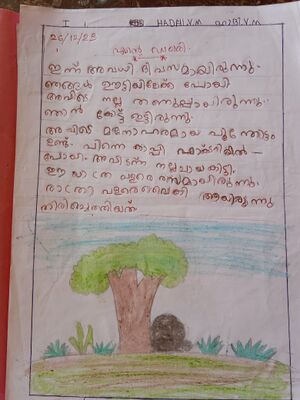 I HADHI.V.M HADHI.V.M
26/12/23
എന്റെ ഡയറി
ഇന്ന് അവധി ദിവസമായിരുന്നു.
ഞങ്ങൾ ഊട്ടിയിലേക്ക് പോയി
അവിടെ നല്ല തണുപ്പായിരുന്നു.
ഞാൻ കോട്ട് ഇട്ടിരുന്നു.
അവിടെ മനോഹരമായ പൂന്തോട്ടം
ഉണ്ട്. പിന്നെ കാപ്പി ഫാക്ടറിയിൽ
പോയി. അവിടന്ന് നല്ല ചായ കിട്ടി.
ഈ യാത്ര വളരെ രസമായിരുന്നു.
രാത്രി വളരെ വൈകി ആയിരുന്നു
തിരിച്ചെത്തിയത്